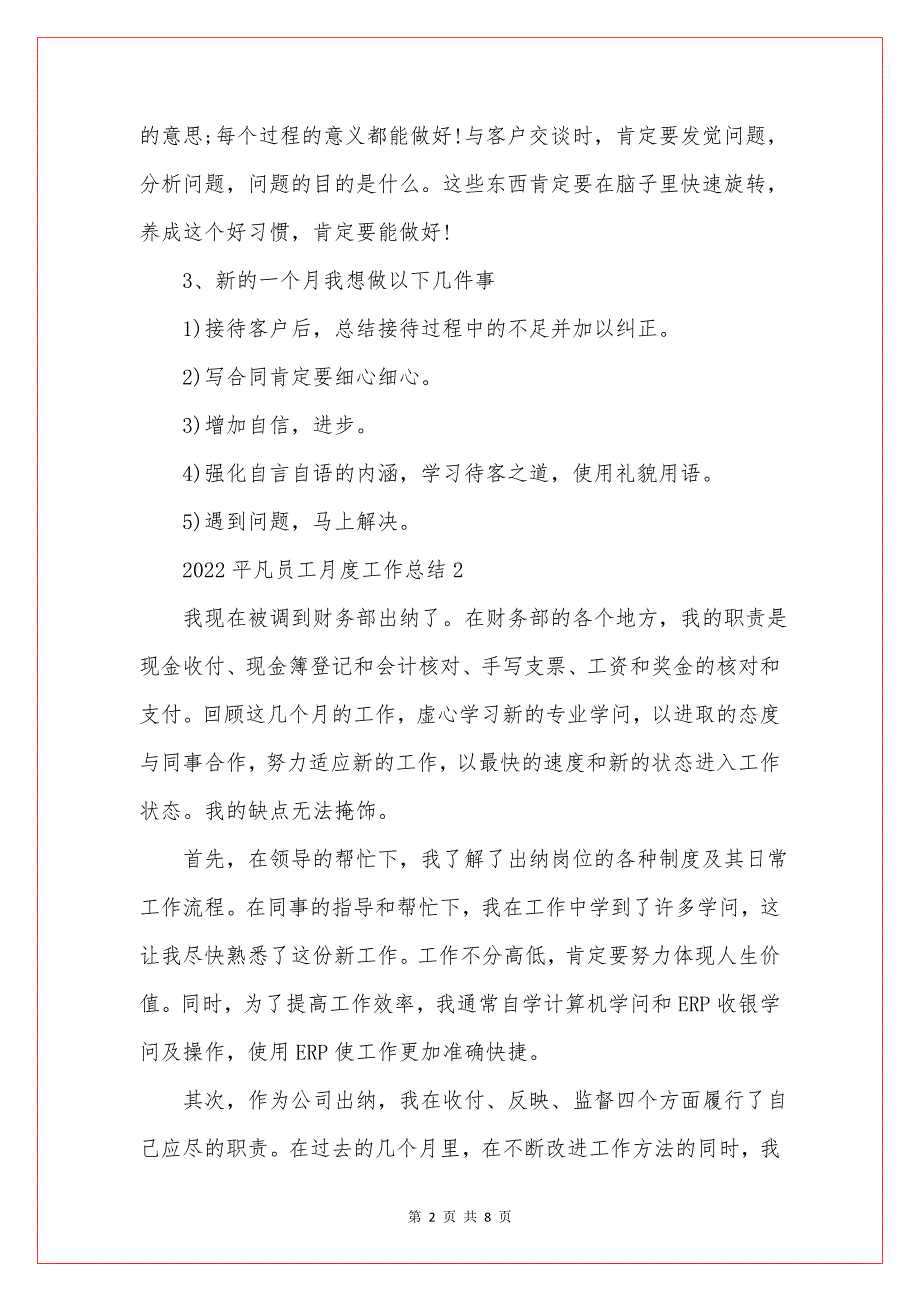 的意思;每个过程的意义都能做好!与客户交谈时，肯定要发觉问题，
分析问题，问题的目的是什么。这些东西肯定要在脑子里快速旋转，
养成这个好习惯，肯定要能做好!
3、新的一个月我想做以下几件事
1)接待客户后，总结接待过程中的不足并加以纠正。
2)写合同肯定要细心细心。
3)增加自信，进步。
4)强化自言自语的内涵，学习待客之道，使用礼貌用语。
5)遇到问题，马上解决。
2022 平凡员工月度工作总结 2
我现在被调到财务部出纳了。在财务部的各个地方，我的职责是
现金收付、现金簿登记和会计核对、手写支票、工资和奖金的核对和
支付。回顾这几个月的工作，虚心学习新的专业学问，以进取的态度
与同事合作，努力适应新的工作，以最快的速度和新的状态进入工作
状态。我的缺点无法掩饰。
首先，在领导的帮忙下，我了解了出纳岗位的各种制度及其日常
工作流程。在同事的指导和帮忙下，我在工作中学到了许多学问，这
让我尽快熟悉了这份新工作。工作不分高低，肯定要努力体现人生价
值。同时，为了提高工作效率，我通常自学计算机学问和 ERP 收银学
问及操作，使用 ERP 使工作更加准确快捷。
其次，作为公司出纳，我在收付、反映、监督四个方面履行了自
己应尽的职责。在过去的几个月里，在不断改进工作方法的同时，我
第 2 页 共 8 页